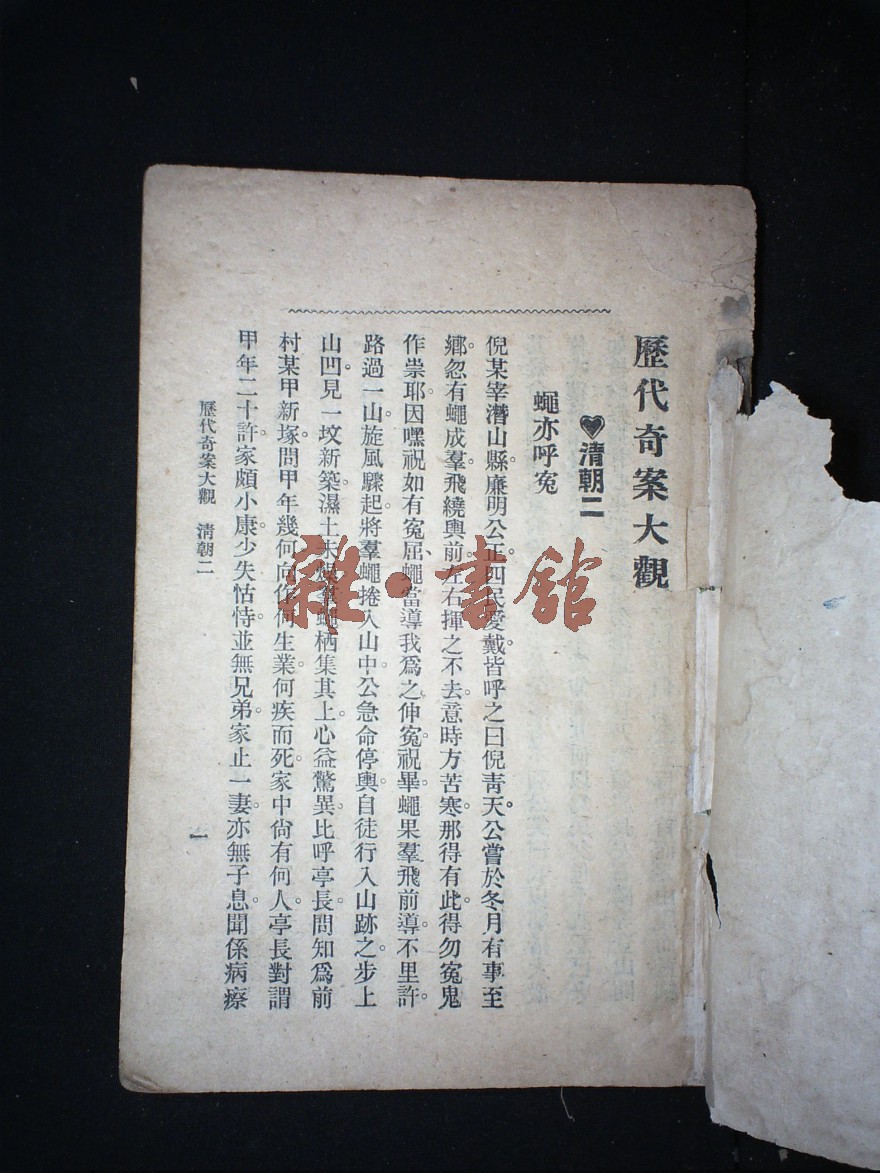 歷代奇案大觀
清朝二
蠅亦呼冤
倪某宰潛山縣廉明公正。四民愛戴。皆呼之曰倪青天。公嘗於冬月有事至
鄉。忽有蠅成羣飛繞輿前。左右揮之不去。意時方苦寒。那得有此。得勿冤鬼
作祟耶。因嘿祝如有冤屈、蠅當導我爲之伸冤。祝畢。蠅果羣飛前導。不里許。
路過一山。旋風驟起。將羣蠅捲入山中。公急命停輿。自徒行入山跡之。步上
山凹。見一坟新築。濕土未 蠅栖集其上。心益驚異。比呼亭長。問知爲前
村某甲新塚。問甲年幾何。向作何生業。何疾而死。家中尙有何人。亭長對謂
甲年二十許。家頗小康。少失怙恃。並無兄弟。家止一妻。亦無子息。聞係病瘵
歷代奇案大觀 清朝二
一
雜·書館